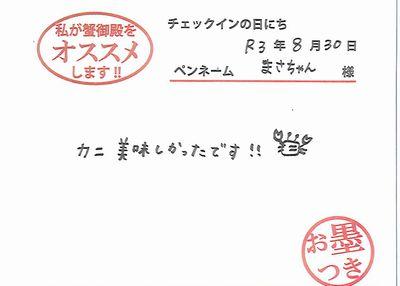 私が蟹御殿を
オススメ
します!!
チェックインの日にち
R3年8月30日
ペンネーム まさちゃん 様
カニ 美味しかったです!!
お墨
つき